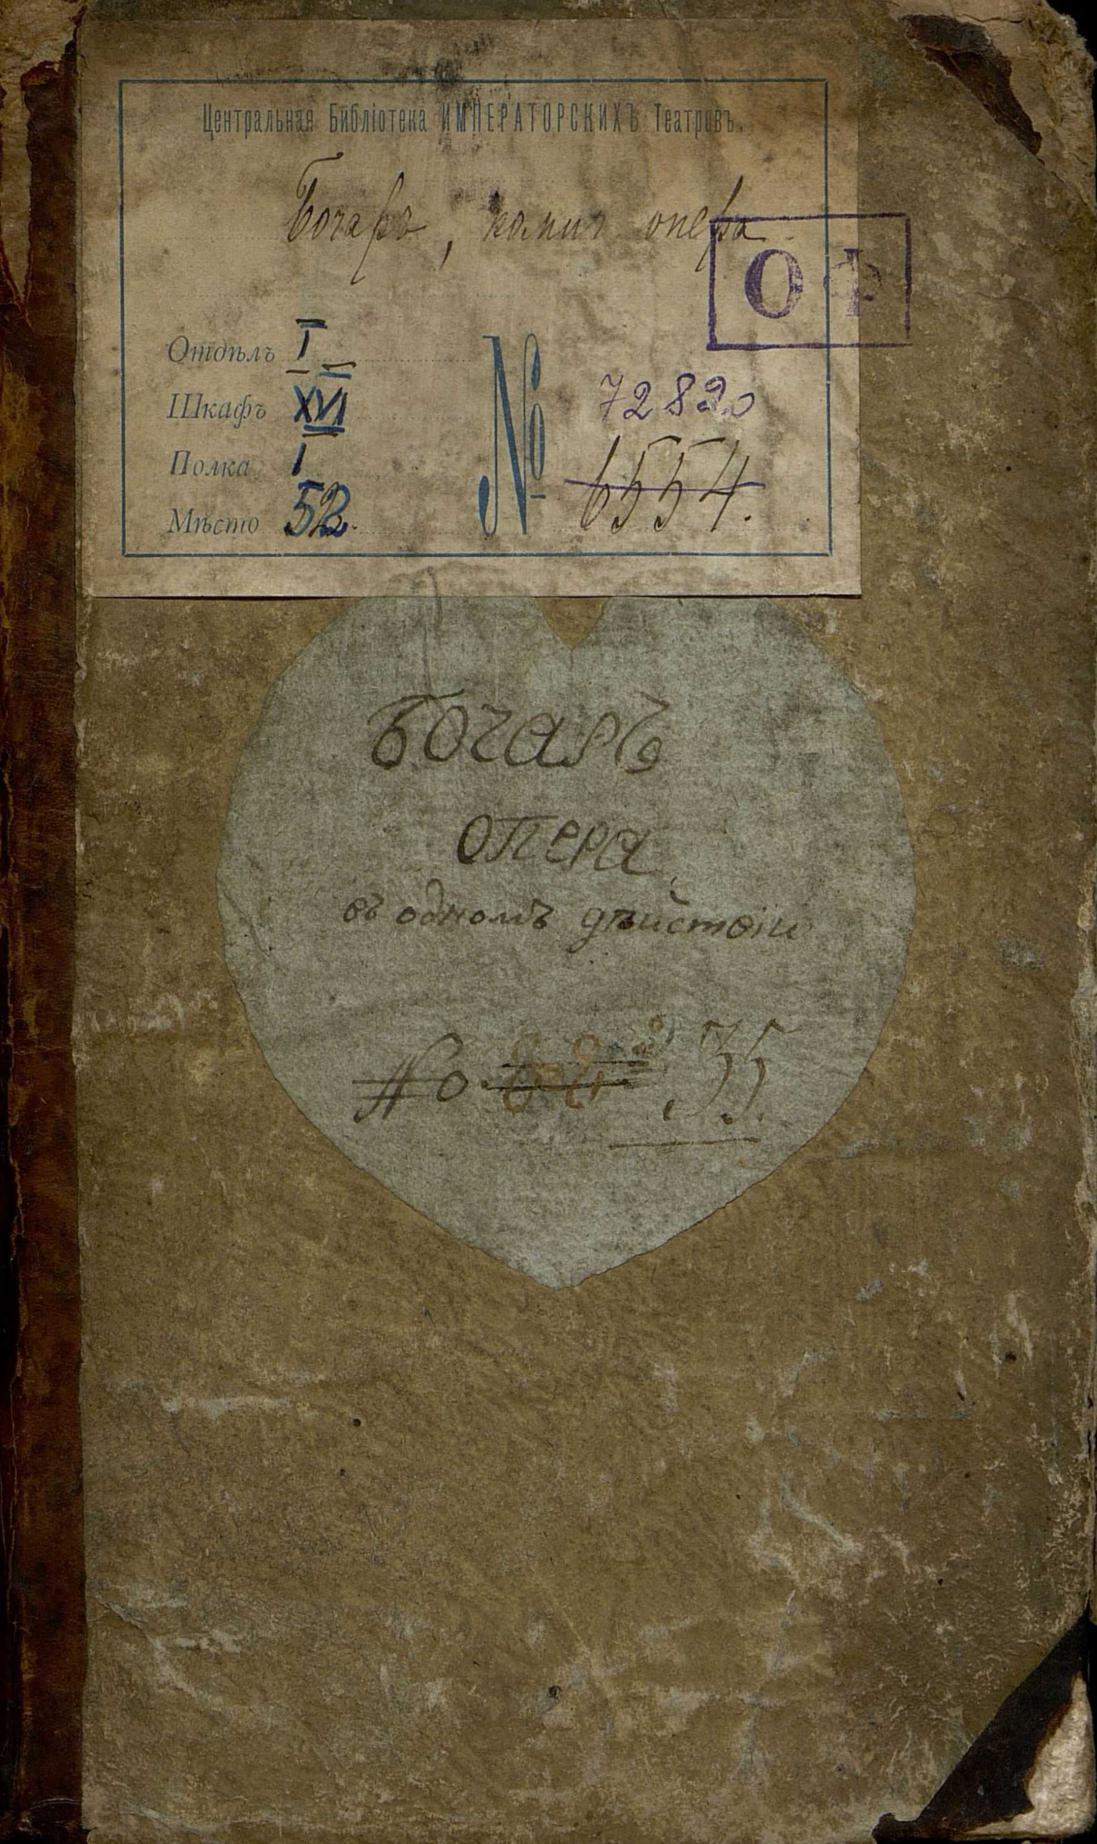 Центральная Библіотека ИМПЕРАТОРСКИХЪ Театровъ.
Бочаръ, комич опера
О Ф
Отдѣлъ I
Шкафъ XVI
Полка I
Мѣсто 52.
№ 72820
6554.
Бочаръ
опера
въ одномъ дѣйствіи
No 35.